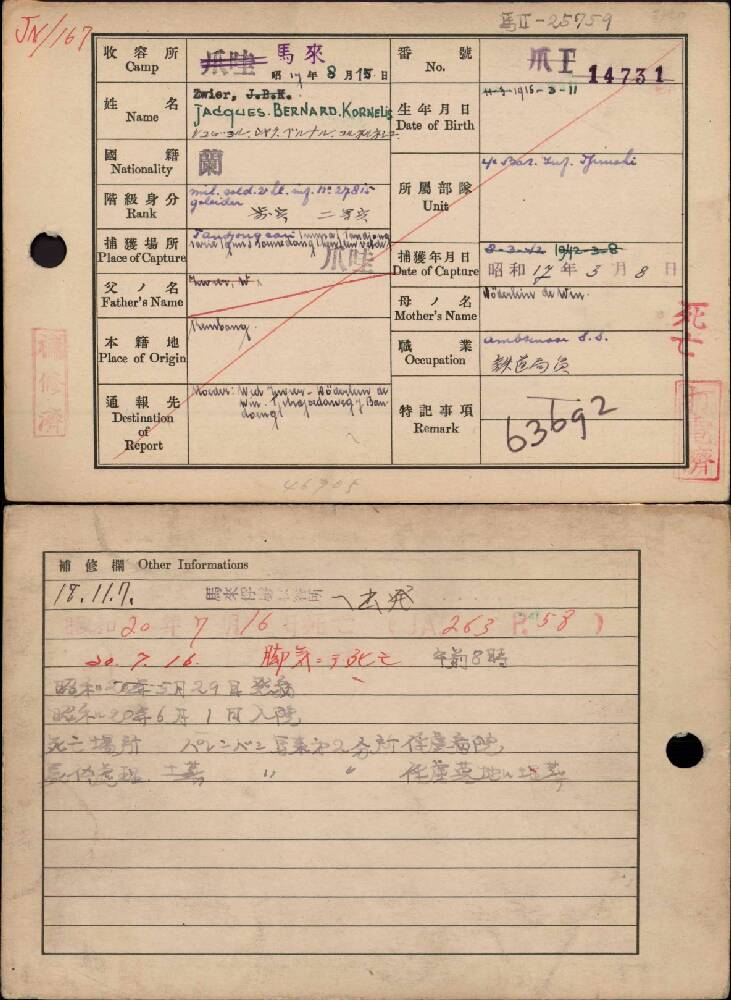 JN/167
馬II-25759
收容所 Camp 爪哇 馬來 昭 17 年 8 月 15 日
番號 No. 爪 I 14731
姓名 Name Zwier, J.B.K.
JACQUES. BERNARD. KORNELIS
生年月日 Date of Birth 1916-3-11
國籍 Nationality 蘭
階級身分 Rank mil. sold. 2e kl. inf. No 27815
geleider
二等兵
所屬部隊 Unit 4e Bat. Inf. Tjimahi
捕獲場所 Place of Capture Tandjongsari
爪哇
捕獲年月日 Date of Capture 8-3-42 1942-3-8
昭和 17 年 3 月 8 日
父ノ名 Father's Name Zwier, W.
母ノ名 Mother's Name Höderlein de Win
本籍地 Place of Origin Rembang
職業 Occupation ambtenaar S.S.
鉄道局員
通報先 Destination of Report Moeder: Wed. Zwier-Höderlein de
Win
Bandoeng
特記事項 Remark 63692
死亡
補修濟
46905
補修欄 Other Informations
18.11.7. 馬來俘虜收容所 ヘ出発
昭和 20 年 7 月 16 日死亡 JA 263 P. 58
20. 7. 16. 脚気ニテ死亡 午前8時
昭和20年5月29日発病
昭和20年6月1日入院
死亡場所 パレンバン 馬来第2分所俘虜病院
死体処理 土葬 〃 〃 俘虜墓地ニ埋葬